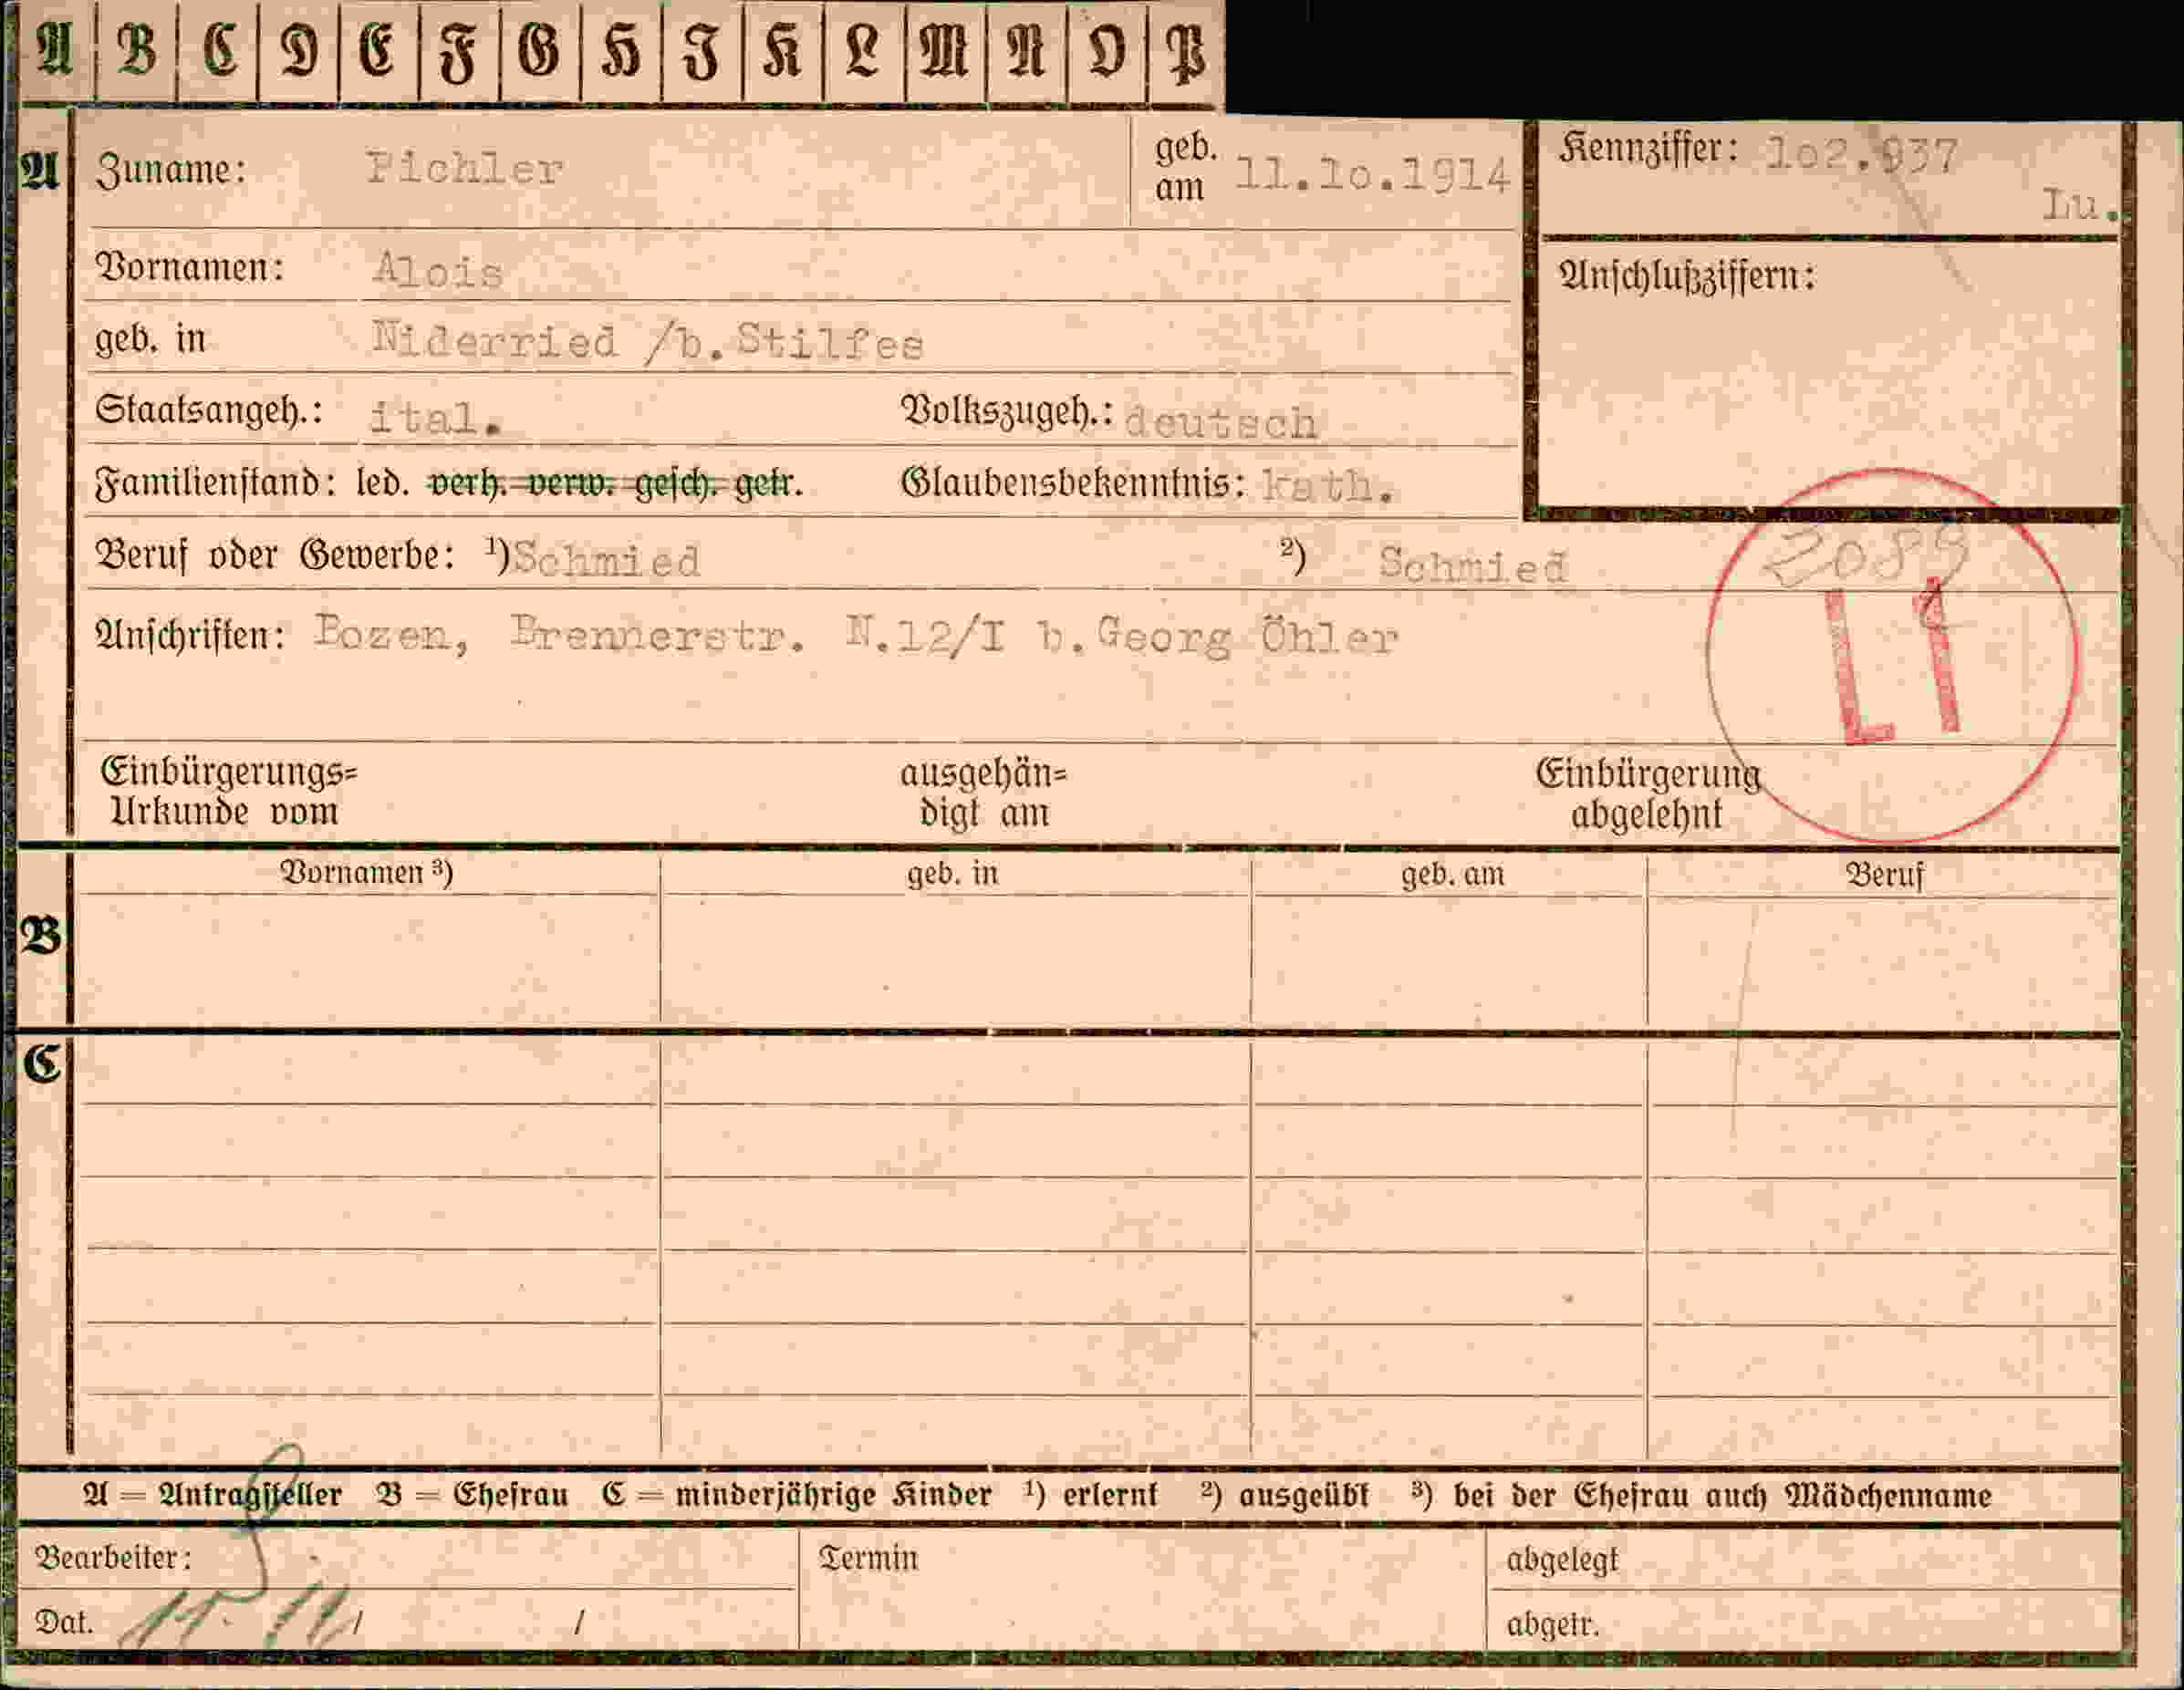 A B C D E F G H I K L M N O P
A Zuname: Pichler geb. am 11.10.1914 Kennziffer: 102.937
Lu.
Vornamen: Alois Anschlußziffern:
geb. in Niderried /b.Stilfes
Staatsangeh.: ital. Volkszugeh.: deutsch
Familienstand: led. verh. verw. gesch. getr. Glaubensbekenntnis: kath.
Beruf oder Gewerbe: ¹)Schmied ²) Schmied 2089
L1
Anschriften: Bozen, Brennerstr. N.12/I b.Georg Öhler
Einbürgerungs= ausgehän= Einbürgerung
Urkunde vom digt am abgelehnt
Vornamen ³) geb. in geb. am Beruf
B
C
A = Antragsteller B = Ehefrau C = minderjährige Kinder ¹) erlernt ²) ausgeübt ³) bei der Ehefrau auch Mädchenname
Bearbeiter: Termin abgelegt
Dat. / / abgetr.